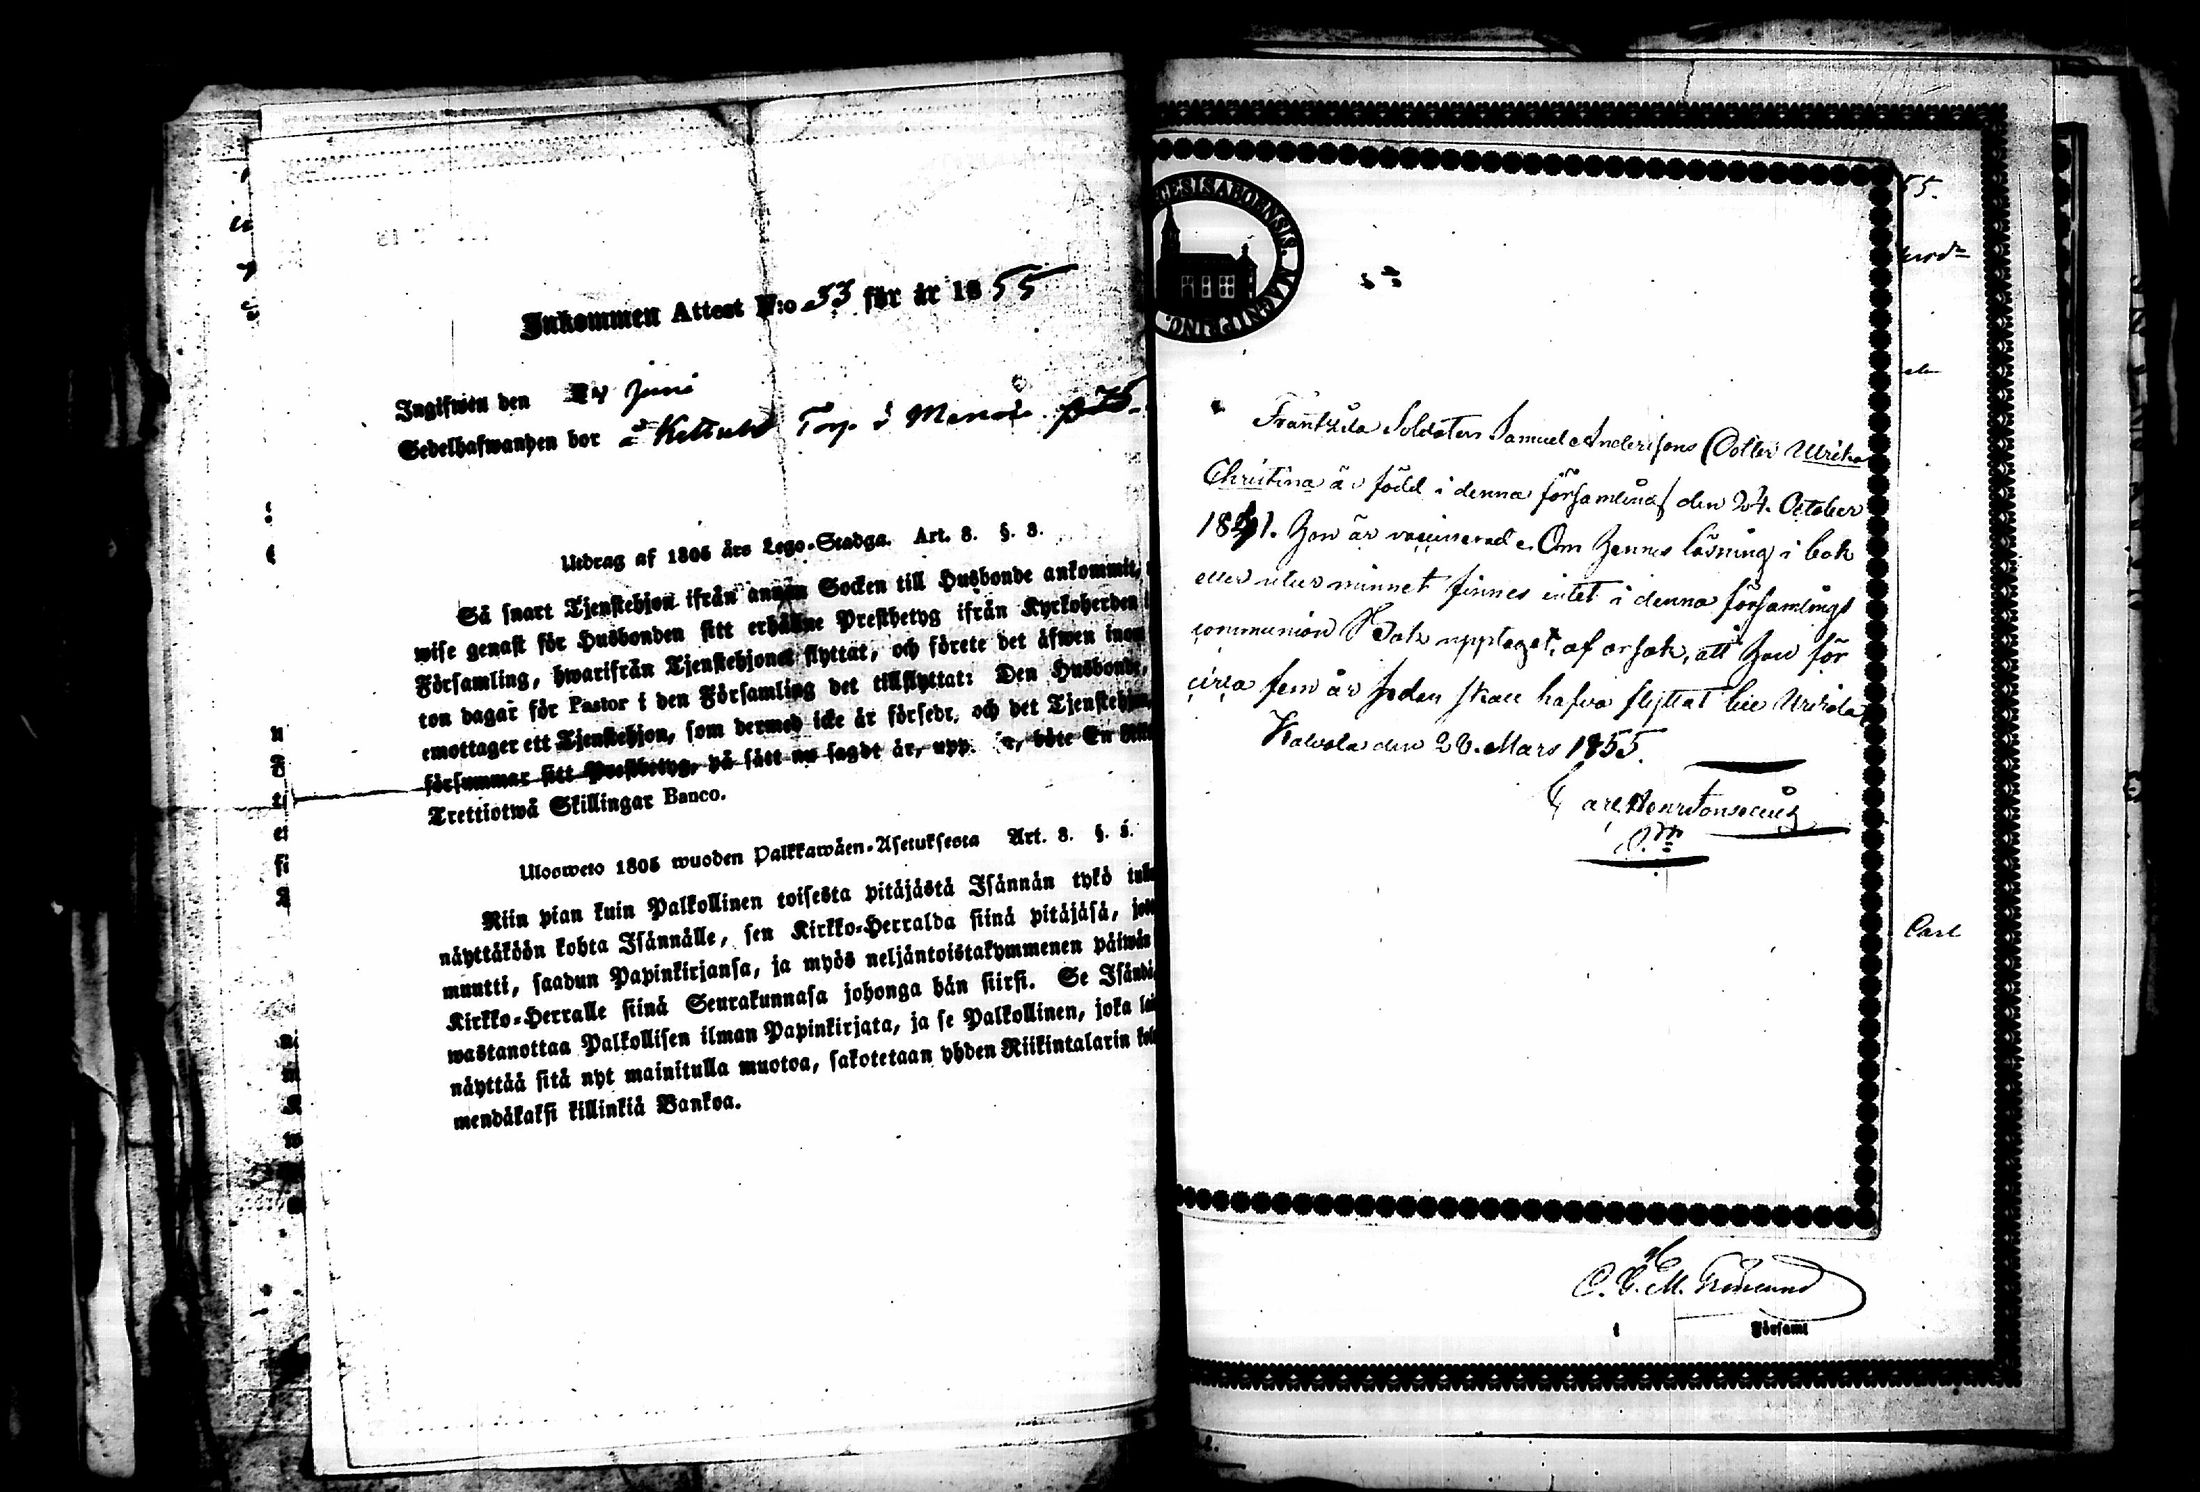 Inkommen Attest N:o 33 för år 1855
Ingifwen den 24 Juni
Sedelhafwanden bor å Torp i
Utdrag af 1805 års Lego-Stadga. Art. 8. §. 3.
Så snart Tjenstehjon ifrån annan Socken till Husbonde ankommit,
wise genast för Husbonden sitt erhållne Prestbetyg ifrån Kyrkoherden i
Församling, hwarifrån Tjenstehjonet flyttat, och förete det äfwen inom
ton dagar för Pastor i den Församling det tillflyttat: Den Husbonde,
emottager ett Tjenstehjon, som dermed icke är försedt, och det Tjenstehjon,
försummar sitt Prestbetyg, på sätt nu sagdt är, upp te, böte En
Trettiotwå Skillingar Banco.
Ulosweto 1805 wuoden Palkkawäen-Asetuksesta Art. 8. §. 3.
Niin pian kuin Palkollinen toisesta pitäjästä Isännän tykö
näyttäköön kohta Isännälle, sen Kirkko-Herralda siinä pitäjäsä,
muutti, saadun Papinkirjansa, ja myös neljäntoistakymmenen päiwän
Kirkko-Herralle siinä Seurakunnasa johonga hän siirsi. Se Isändä,
wastanottaa Palkollisen ilman Papinkirjata, ja se Palkollinen, joka
näyttää sitä nyt mainitulla muotoa, sakotetaan yhden Riikintalarin
mendäkaksi killinkiä Bankoa.
CESIS ABOENSIS. MAGNI PRINC.
33
Frantsila Soldaten Samuel Anderssons Dotter Ulrika
Christina är född i denna församling den 24. October
1841. Hon är vaccinerad. Om Hennes läsning i bok
eller utur minnet finnes intet i denna församlings
communion Bok upptaget, af orsak, att Hon för
circa fem år sedan skall hafva flyttat till Urdiala,
Kalvola den 28. Mars 1855.
Carl Henr
C. E. M.
i Församl
55.
Carl